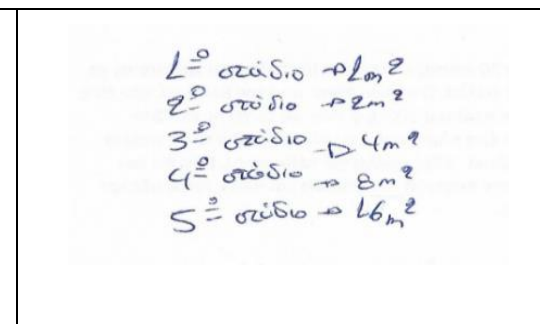 1º στάδιο → 1m²
2º στάδιο → 2m²
3º στάδιο → 4m²
4º στάδιο → 8m²
5º στάδιο → 16m²